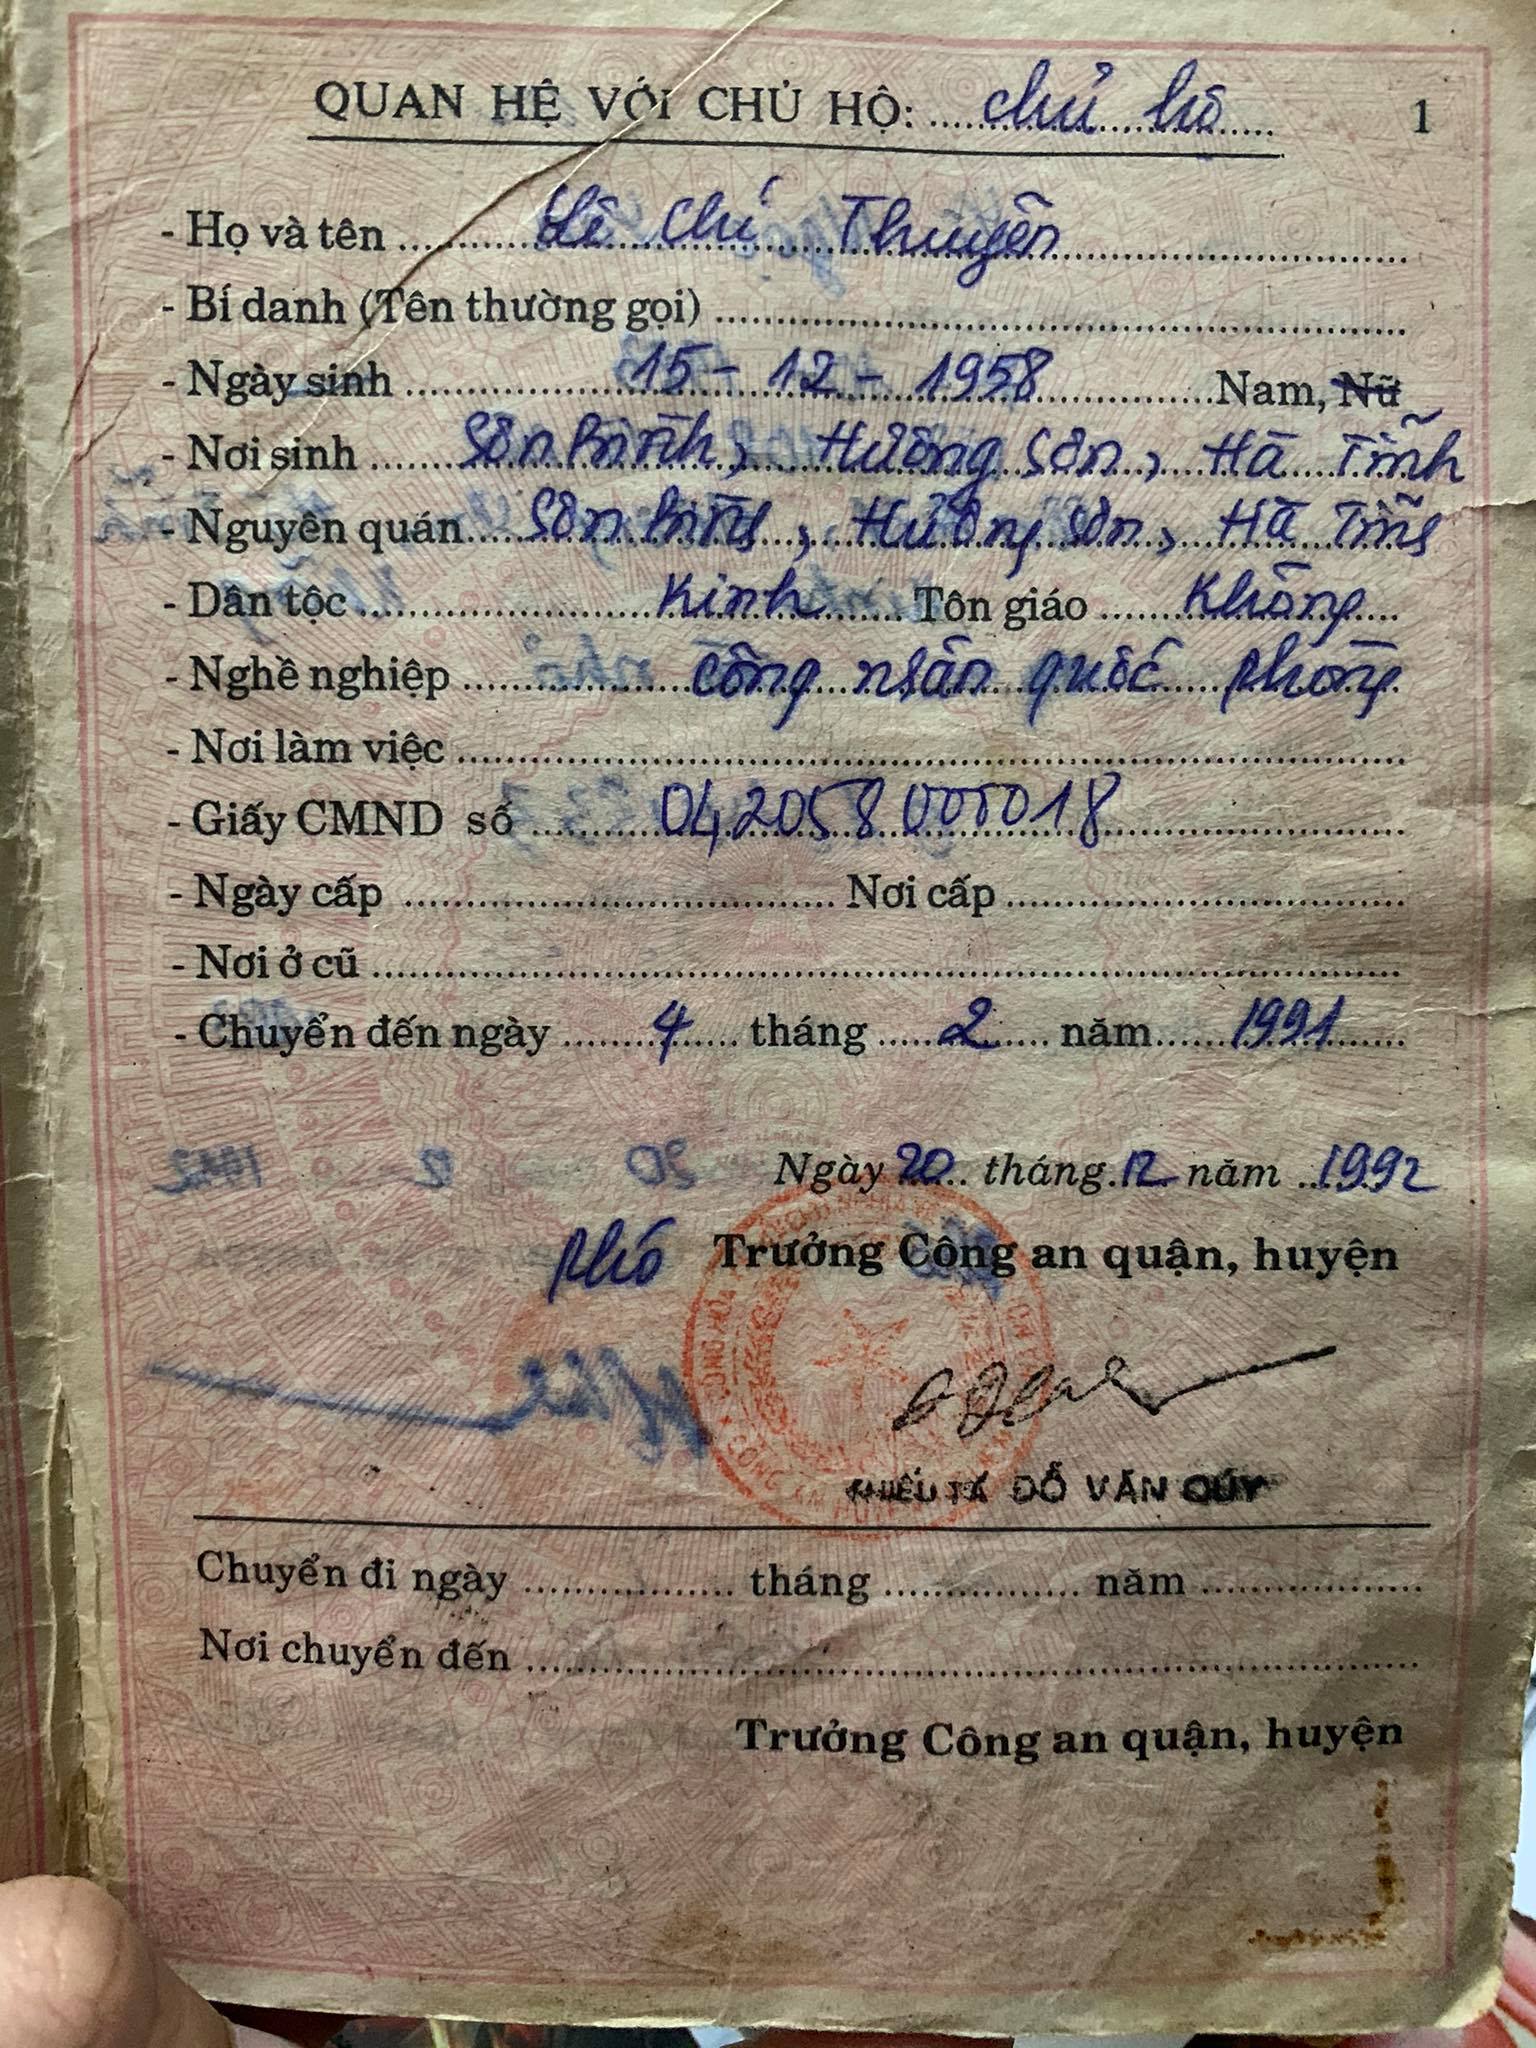 QUAN HỆ VỚI CHỦ HỘ: chủ hộ 1
- Họ và tên Lê Chí Thuyên
- Bí danh (Tên thường gọi)
- Ngày sinh 15 - 12 - 1958 Nam, Nữ
- Nơi sinh Sơn Bình, Hương Sơn, Hà Tĩnh
- Nguyên quán Sơn Bình, Hương Sơn, Hà Tĩnh
- Dân tộc Kinh Tôn giáo Không
- Nghề nghiệp Công nhân quốc phòng
- Nơi làm việc
- Giấy CMND số 042058000018
- Ngày cấp Nơi cấp
- Nơi ở cũ
- Chuyển đến ngày 4 tháng 2 năm 1991
Ngày 20 tháng 12 năm 1992
Phó Trưởng Công an quận, huyện
THIẾU TÁ ĐỖ VĂN QÚY
Chuyển đi ngày tháng năm
Nơi chuyển đến
Trưởng Công an quận, huyện